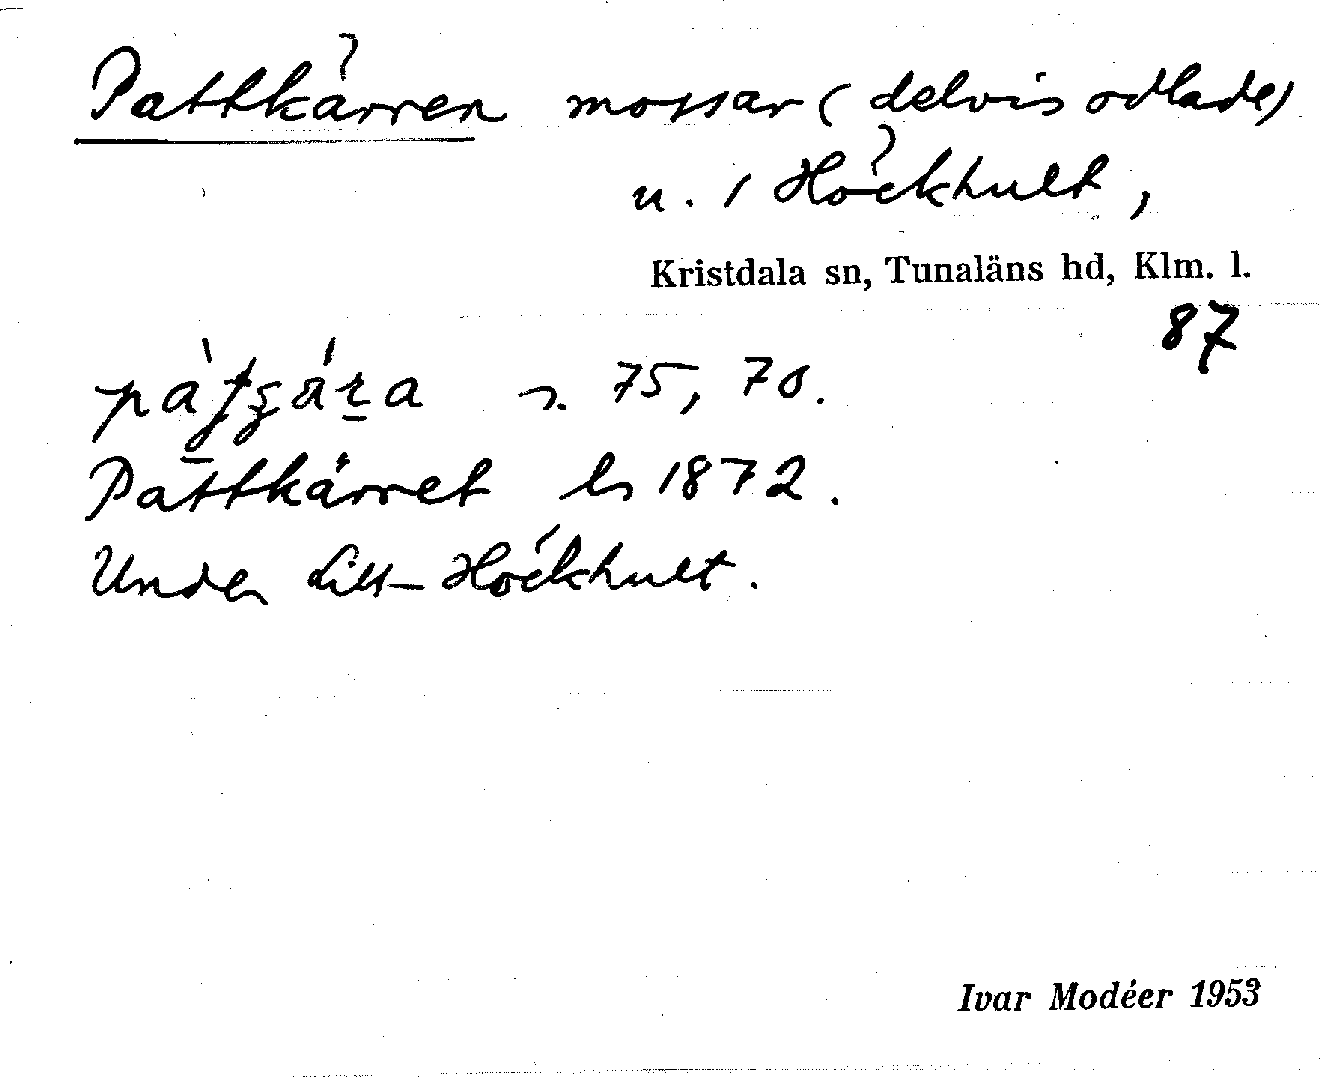 Pattkärren mossar (delvis odlade)
u. 1 Höckhult,
Kristdala sn, Tunaläns hd, Klm. l.
87
s. 75, 70.
Pattkärret ls 1872.
Under Lill-Höckhult.
Ivar Modéer 1953